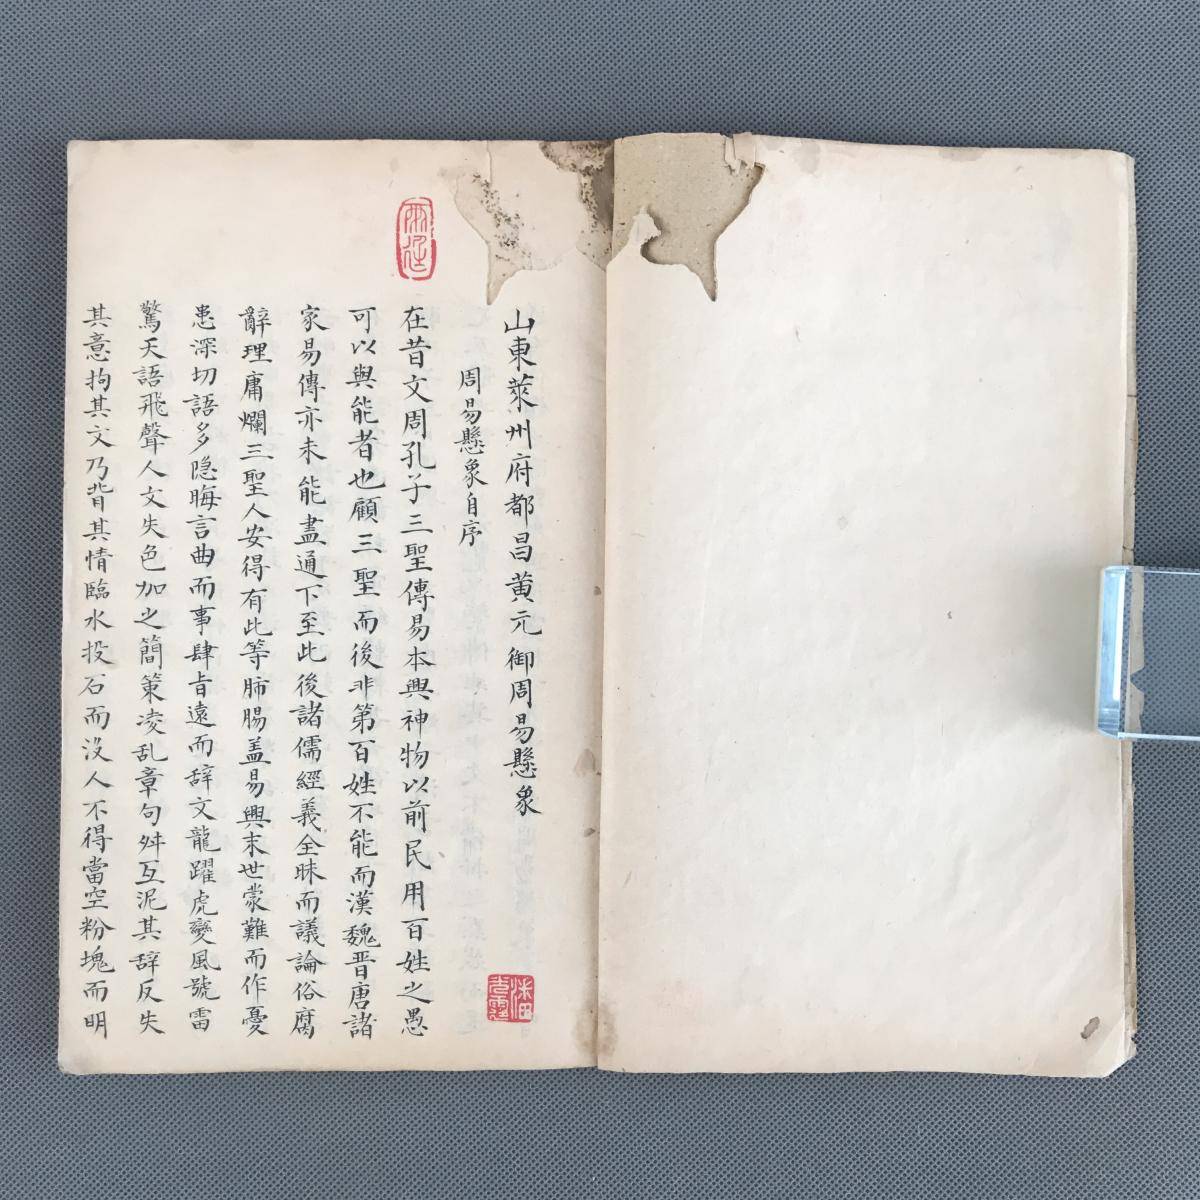 山東萊州府都昌黄元御周易懸象
周易懸象自序
在昔文周孔子三聖傳易本興神物以前民用百姓之愚
可以與能者也顧三聖而後非第百姓不能而漢魏晋唐諸
家易傳亦未能盡通下至此後諸儒經義全昧而議論俗腐
辭理庸爛三聖人安得有此等肺腸盖易興末世蒙難而作憂
患深切語多隐晦言曲而事肆旨遠而辞文龍躍虎變風號雷
驚天語飛聲人文失色加之簡策凌乱章句舛互泥其辞反失
其意拘其文乃背其情臨水投石而沒人不得當空粉塊而明